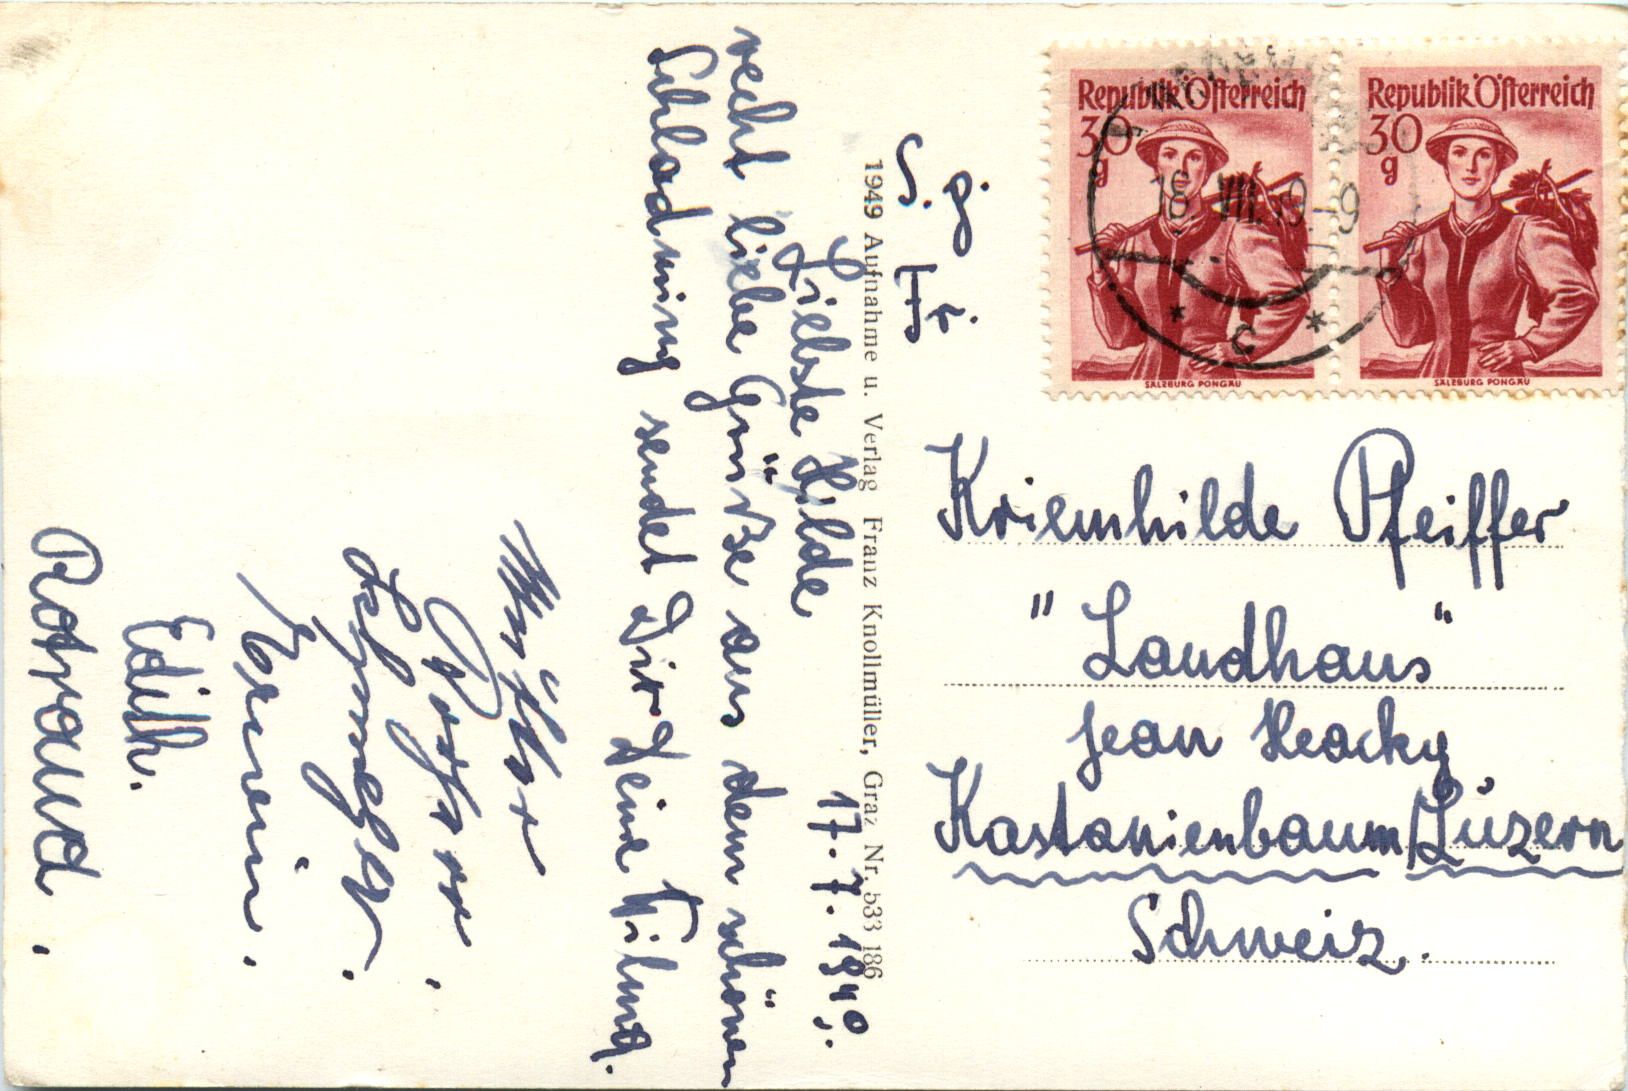 17. 7. 1949.
Liebste Hilde
recht liebe Grüße aus dem schönen
Schladming sendet Dir Deine Wilma.
Erwin.
Edith.
Rotraud.
1949 Aufnahme u. Verlag Franz Knollmüller, Graz Nr. 533 186
Republik Österreich
30
g
SALZBURG PONGAU
Republik Österreich
30
g
SALZBURG PONGAU
18. VII. 49-9
* c *
Kriemhilde Pfeiffer
"Landhaus"
Jean
Kastanienbaum/Luzern
Schweiz.